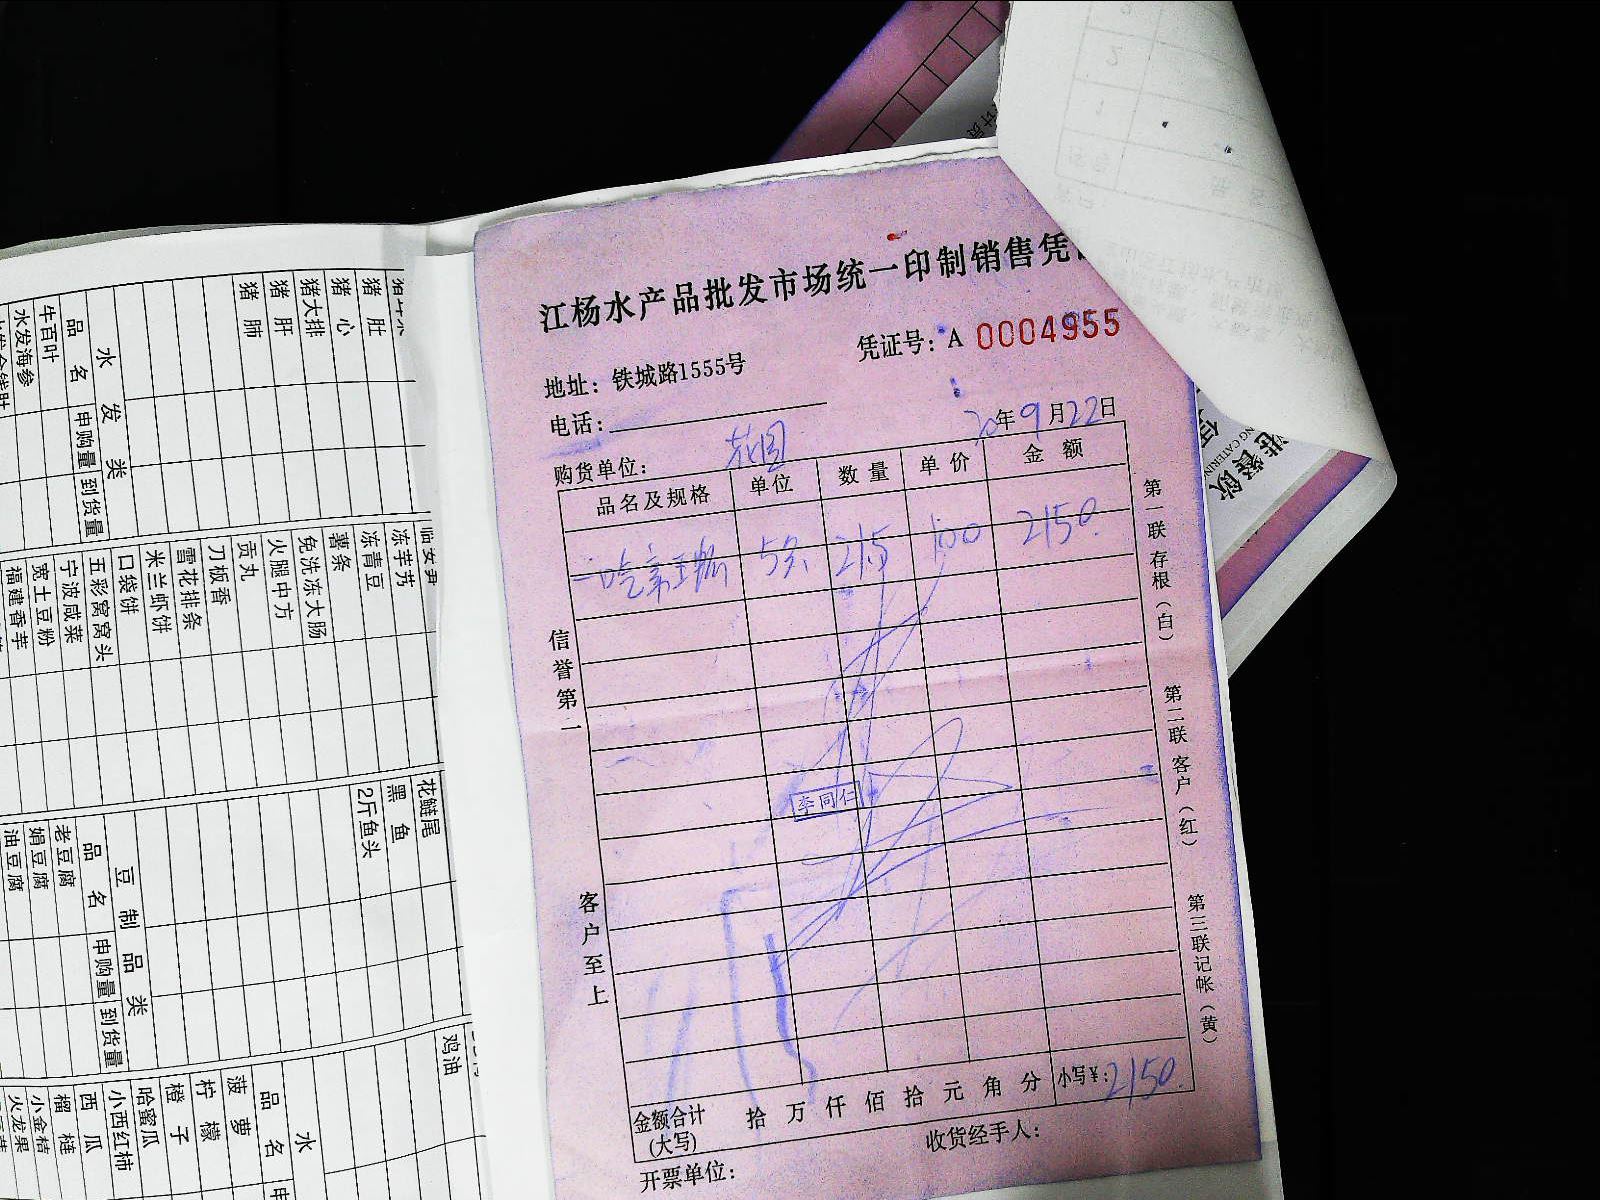 江杨水产品批发市场统一印制销售凭
凭证号：A 0004955
地址：铁城路1555号
电话：
20年9月22日
购货单位：花园
品名及规格 单位 数量 单价 金额
5只 215 100 2150.
信誉第一
客户至上
李同仁
第一联存根（白） 第二联客户（红） 第三联记帐（黄）
金额合计（大写） 拾万仟佰拾元角分 小写¥：2150.
收货经手人：
开票单位：
猪肚
猪心
猪大排
猪肝
猪肺
水发类
品名 申购量 到货量
牛百叶
水发海参
冻芋艿
冻青豆
薯条
免洗冻大肠
火腿中方
贡丸
刀板香
雪花排条
米兰虾饼
口袋饼
五彩窝窝头
宁波咸菜
宽土豆粉
福建香芋
花鲢尾
黑鱼
2斤鱼头
豆制品类
品名 申购量 到货量
老豆腐
娟豆腐
油豆腐
鸡油
水
品名 申
菠萝
柠檬
橙子
哈蜜瓜
小西红柿
西瓜
榴梿
小金桔
火龙果